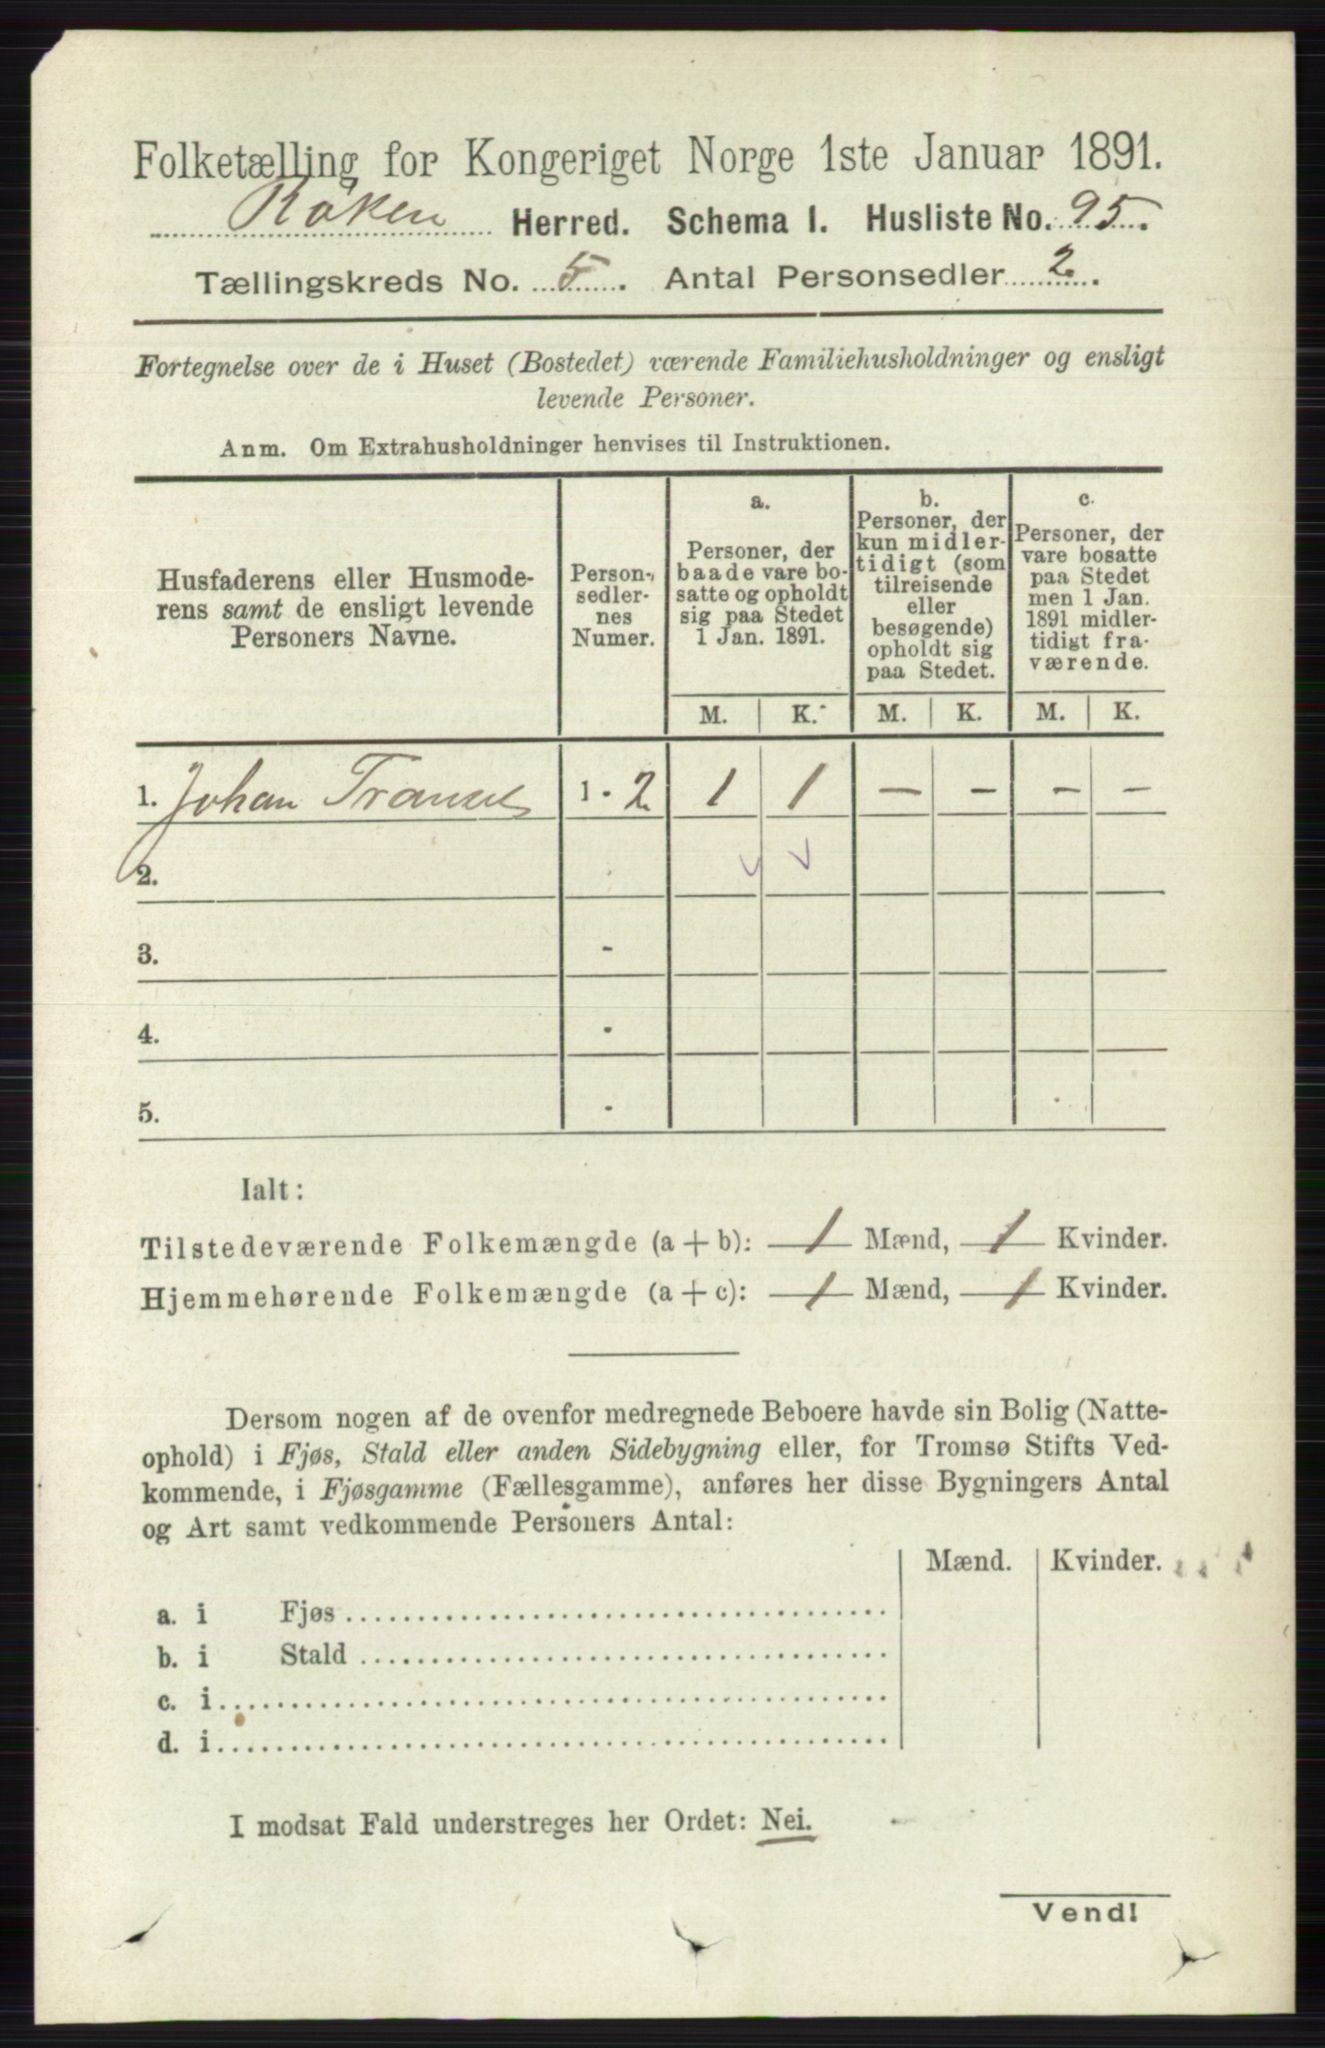 Folketælling for Kongeriget Norge 1ste Januar 1891.
Röken Herred. Schema I. Husliste No. 95.
Tællingskreds No. 5. Antal Personsedler 2.
Fortegnelse over de i Huset (Bostedet) værende Familiehusholdninger og ensligt
levende Personer.
Anm. Om Extrahusholdninger henvises til Instruktionen.
Husfaderens eller Husmode-
rens samt de ensligt levende
Personers Navne.
Person-
sedler-
nes
Numer.
a.
Personer, der
baade vare bo-
satte og opholdt
sig paa Stedet
1 Jan. 1891.
b.
Personer, der
kun midler-
tidigt (som
tilreisende
eller
besøgende)
opholdt sig
paa Stedet.
c.
Personer, der
vare bosatte
paa Stedet
men 1 Jan.
1891 midler-
tidigt fra-
værende.
M. K. M. K. M. K.
1. Johan 1 - 2 1 1 — — — —
2.
3. -
4. -
5. -
Ialt:
Tilstedeværende Folkemængde (a + b): 1 Mænd, 1 Kvinder.
Hjemmehørende Folkemængde (a + c): 1 Mænd, 1 Kvinder.
Dersom nogen af de ovenfor medregnede Beboere havde sin Bolig (Natte-
ophold) i Fjøs, Stald eller anden Sidebygning eller, for Tromsø Stifts Ved-
kommende, i Fjøsgamme (Fællesgamme), anføres her disse Bygningers Antal
og Art samt vedkommende Personers Antal:
Mænd. Kvinder.
a. i Fjøs
b. i Stald
c. i
d. i
I modsat Fald understreges her Ordet: Nei.
Vend!